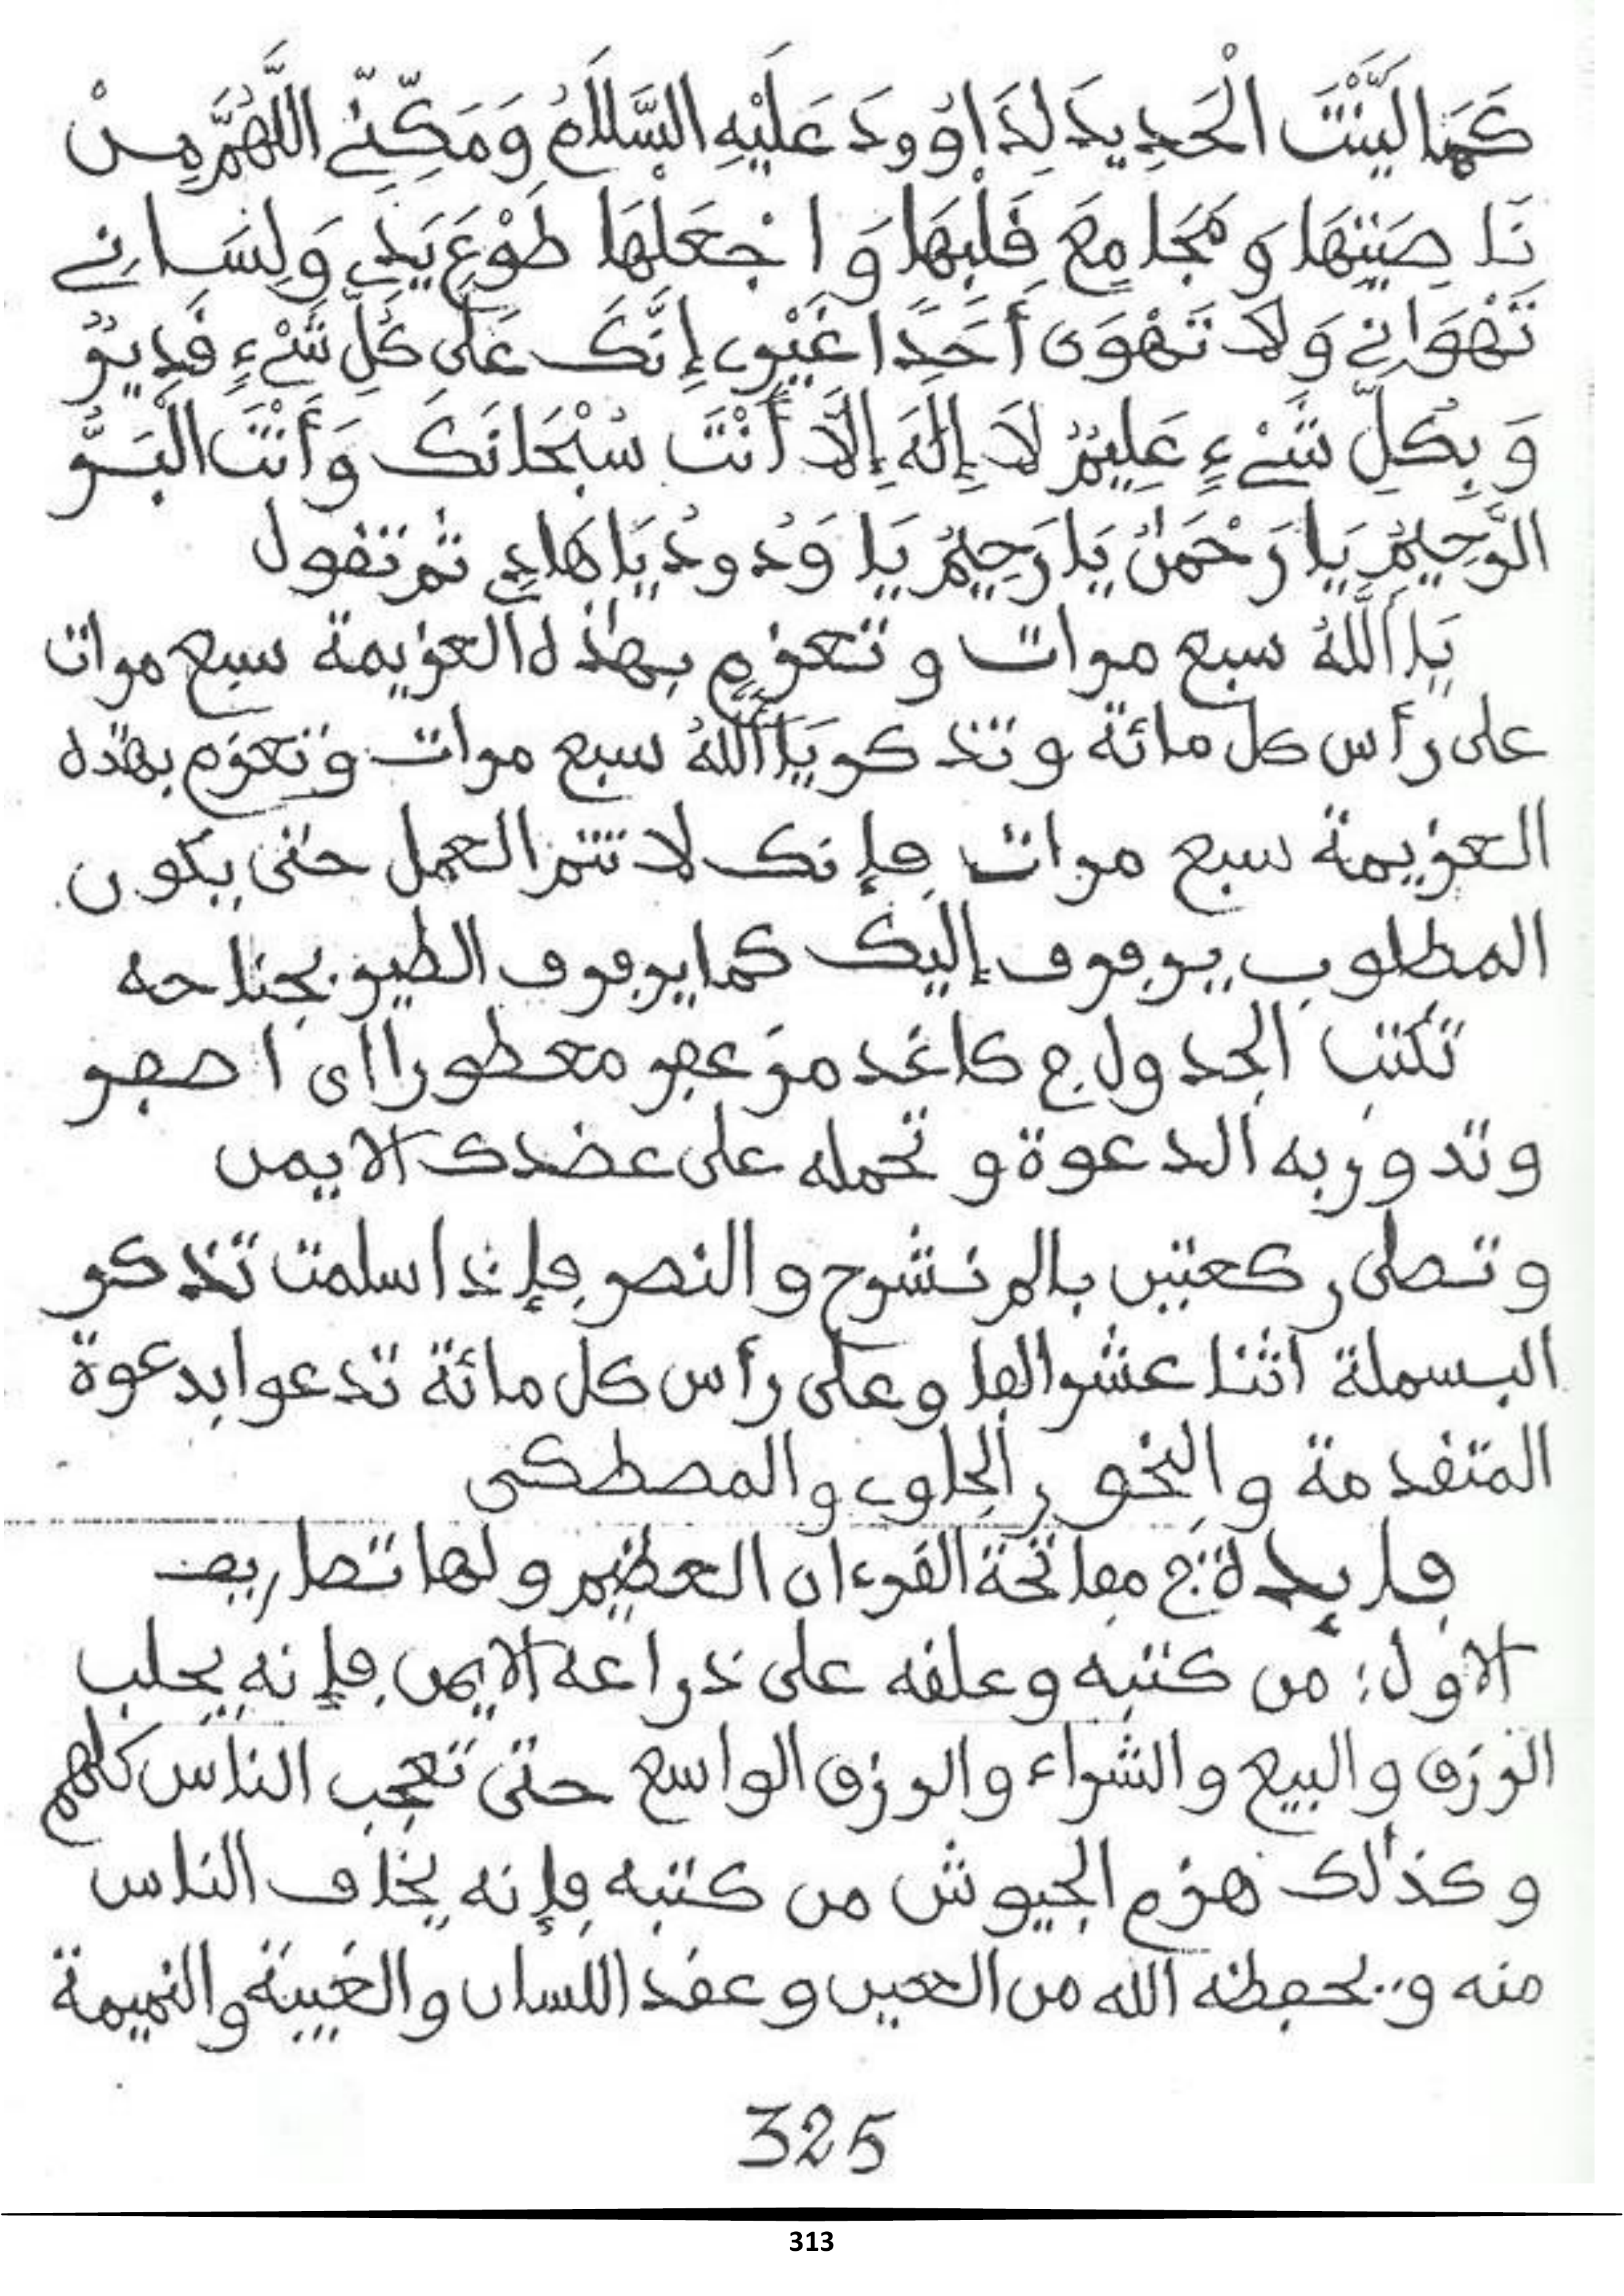 كَمَا لَيَّنْتَ الْحَدِيدَ لِدَاوُودَ عَلَيْهِ السَّلَامُ وَمَكِّنِّي اللَّهُمَّ مِنْ
نَاصِيَتِهَا وَمَجَامِعَ قَلْبِهَا وَاجْعَلْهَا طَوْعَ يَدِي وَلِسَانِي
تَهْوَانِي وَلَا تَهْوَى أَحَدًا غَيْرِي إِنَّكَ عَلَى كُلِّ شَيْءٍ قَدِيرٌ
وَبِكُلِّ شَيْءٍ عَلِيمٌ لَا إِلَهَ إِلَّا أَنْتَ سُبْحَانَكَ وَأَنْتَ الْبَرُّ
الرَّحِيمُ يَا رَحْمَنُ يَا رَحِيمُ يَا وَدُودُ يَا هَادِي ثم تقول
يَا أَللَّهُ سبع مرات وتعزم بهذه العزيمة سبع مرات
على رأس كل مائة وتذكر يَا أَللَّهُ سبع مرات وتعزم بهذه
العزيمة سبع مرات فإنك لا تتم العمل حتى يكون
المطلوب يرفرف إليك كما يرفرف الطير بجناحه
تكتب الجدول في كاغد مزعفر معطورا اى اصفر
وتدور به الدعوة وتحمله على عضدك الايمن
وتصلى ركعتين بالم نشرح والنصر فإذا سلمت تذكر
البسملة اثنا عشر الفا وعلى رأس كل مائة تدعوا بدعوة
المتقدمة والبخور الجاوي والمصطكى
فايدة: في مفاتحة القرءان العظيم ولها تصاريف
الاول: من كتبه وعلقه على ذراعه الايمن فإنه يجلب
الرزق والبيع والشراء والرزق الواسع حتى تعجب الناس كلهم
وكذلك هزم الجيوش من كتبه فإنه يخاف الناس
منه ويحفظه الله من العين وعقد اللسان والغيبة والنميمة
325
313